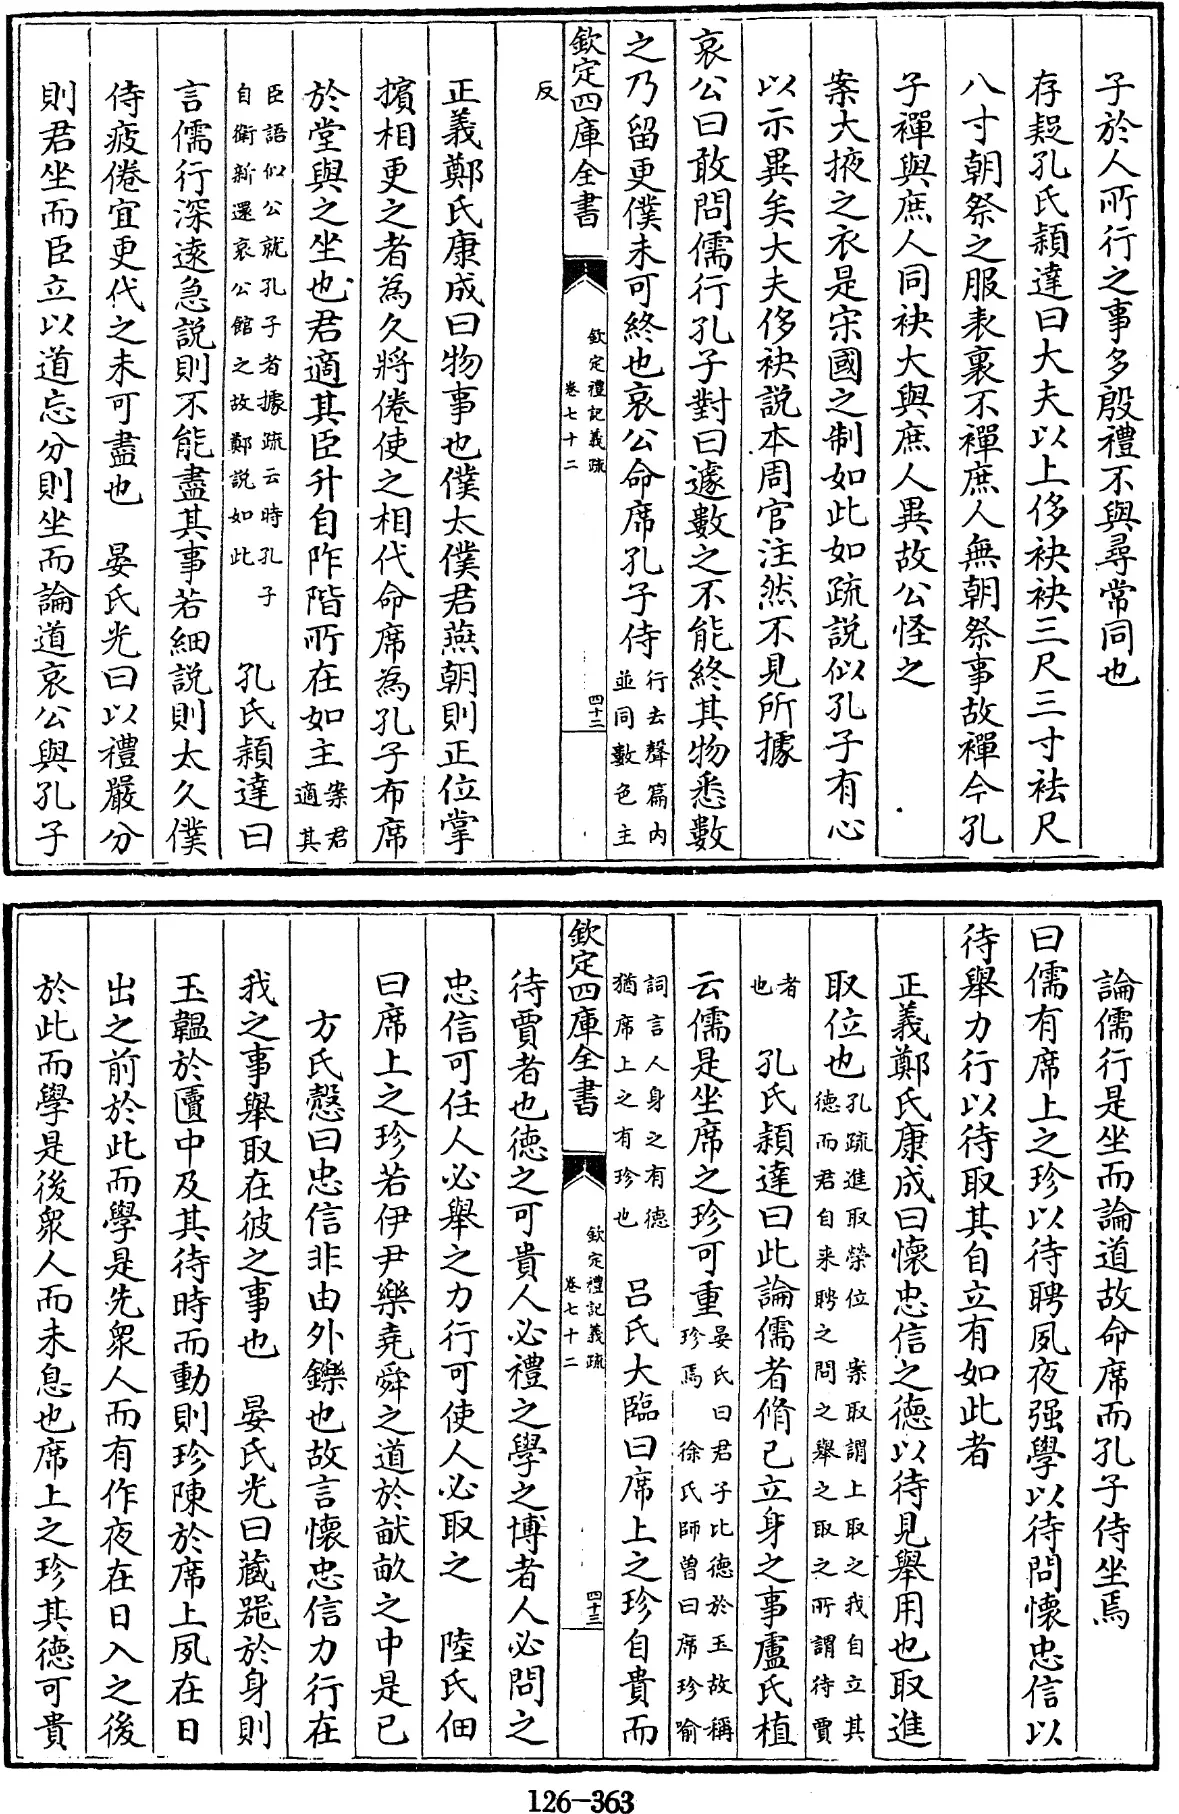 子於人所行之事多殷禮不與尋常同也
存疑孔氏穎達曰大夫以上侈袂袂三尺三寸袪尺
八寸朝祭之服表裏不禪庶人無朝祭事故禪今孔
子禪與庶人同袂大與庶人異故公怪之
案大掖之衣是宋國之制如此如疏説似孔子有心
以示異矣大夫侈袂説本周官注然不見所據
哀公曰敢問儒行孔子對曰遽數之不能終其物悉數
之乃留更僕未可終也哀公命席孔子侍行去聲篇内並同數色主
欽定四庫全書
欽定禮記義疏
卷七十二
四十二
反
正義鄭氏康成曰物事也僕太僕君燕朝則正位掌
擯相更之者為久將倦使之相代命席為孔子布席
於堂與之坐也君適其臣升自阼階所在如主案君適其
臣語似公就孔子者據疏云時孔子自衛新還哀公館之故鄭説如此　孔氏穎達曰
言儒行深逺急説則不能盡其事若細説則太久僕
侍疲倦宜更代之未可盡也　晏氏光曰以禮嚴分
則君坐而臣立以道忘分則坐而論道哀公與孔子
論儒行是坐而論道故命席而孔子侍坐焉
曰儒有席上之珍以待聘夙夜强學以待問懷忠信以
待舉力行以待取其自立有如此者
正義鄭氏康成曰懷忠信之德以待見舉用也取進
取位也孔疏進取榮位　案取謂上取之我自立其德而君自来聘之問之舉之取之所謂待賈
者也　孔氏穎達曰此論儒者脩己立身之事盧氏植
云儒是坐席之珍可重晏氏曰君子比德於玉故稱珍焉　徐氏師曾曰席珍喻
詞言人身之有德猶席上之有珍也　吕氏大臨曰席上之珍自貴而
欽定四庫全書
欽定禮記義疏
卷七十二
四十三
待賈者也徳之可貴人必禮之學之博者人必問之
忠信可任人必舉之力行可使人必取之　陸氏佃
曰席上之珍若伊尹樂堯舜之道於畎畝之中是已
方氏慤曰忠信非由外鑠也故言懷忠信力行在
我之事舉取在彼之事也　晏氏光曰藏器於身則
玉韞於匵中及其待時而動則珍陳於席上夙在日
出之前於此而學是先衆人而有作夜在日入之後
於此而學是後衆人而未息也席上之珍其德可貴
126-363